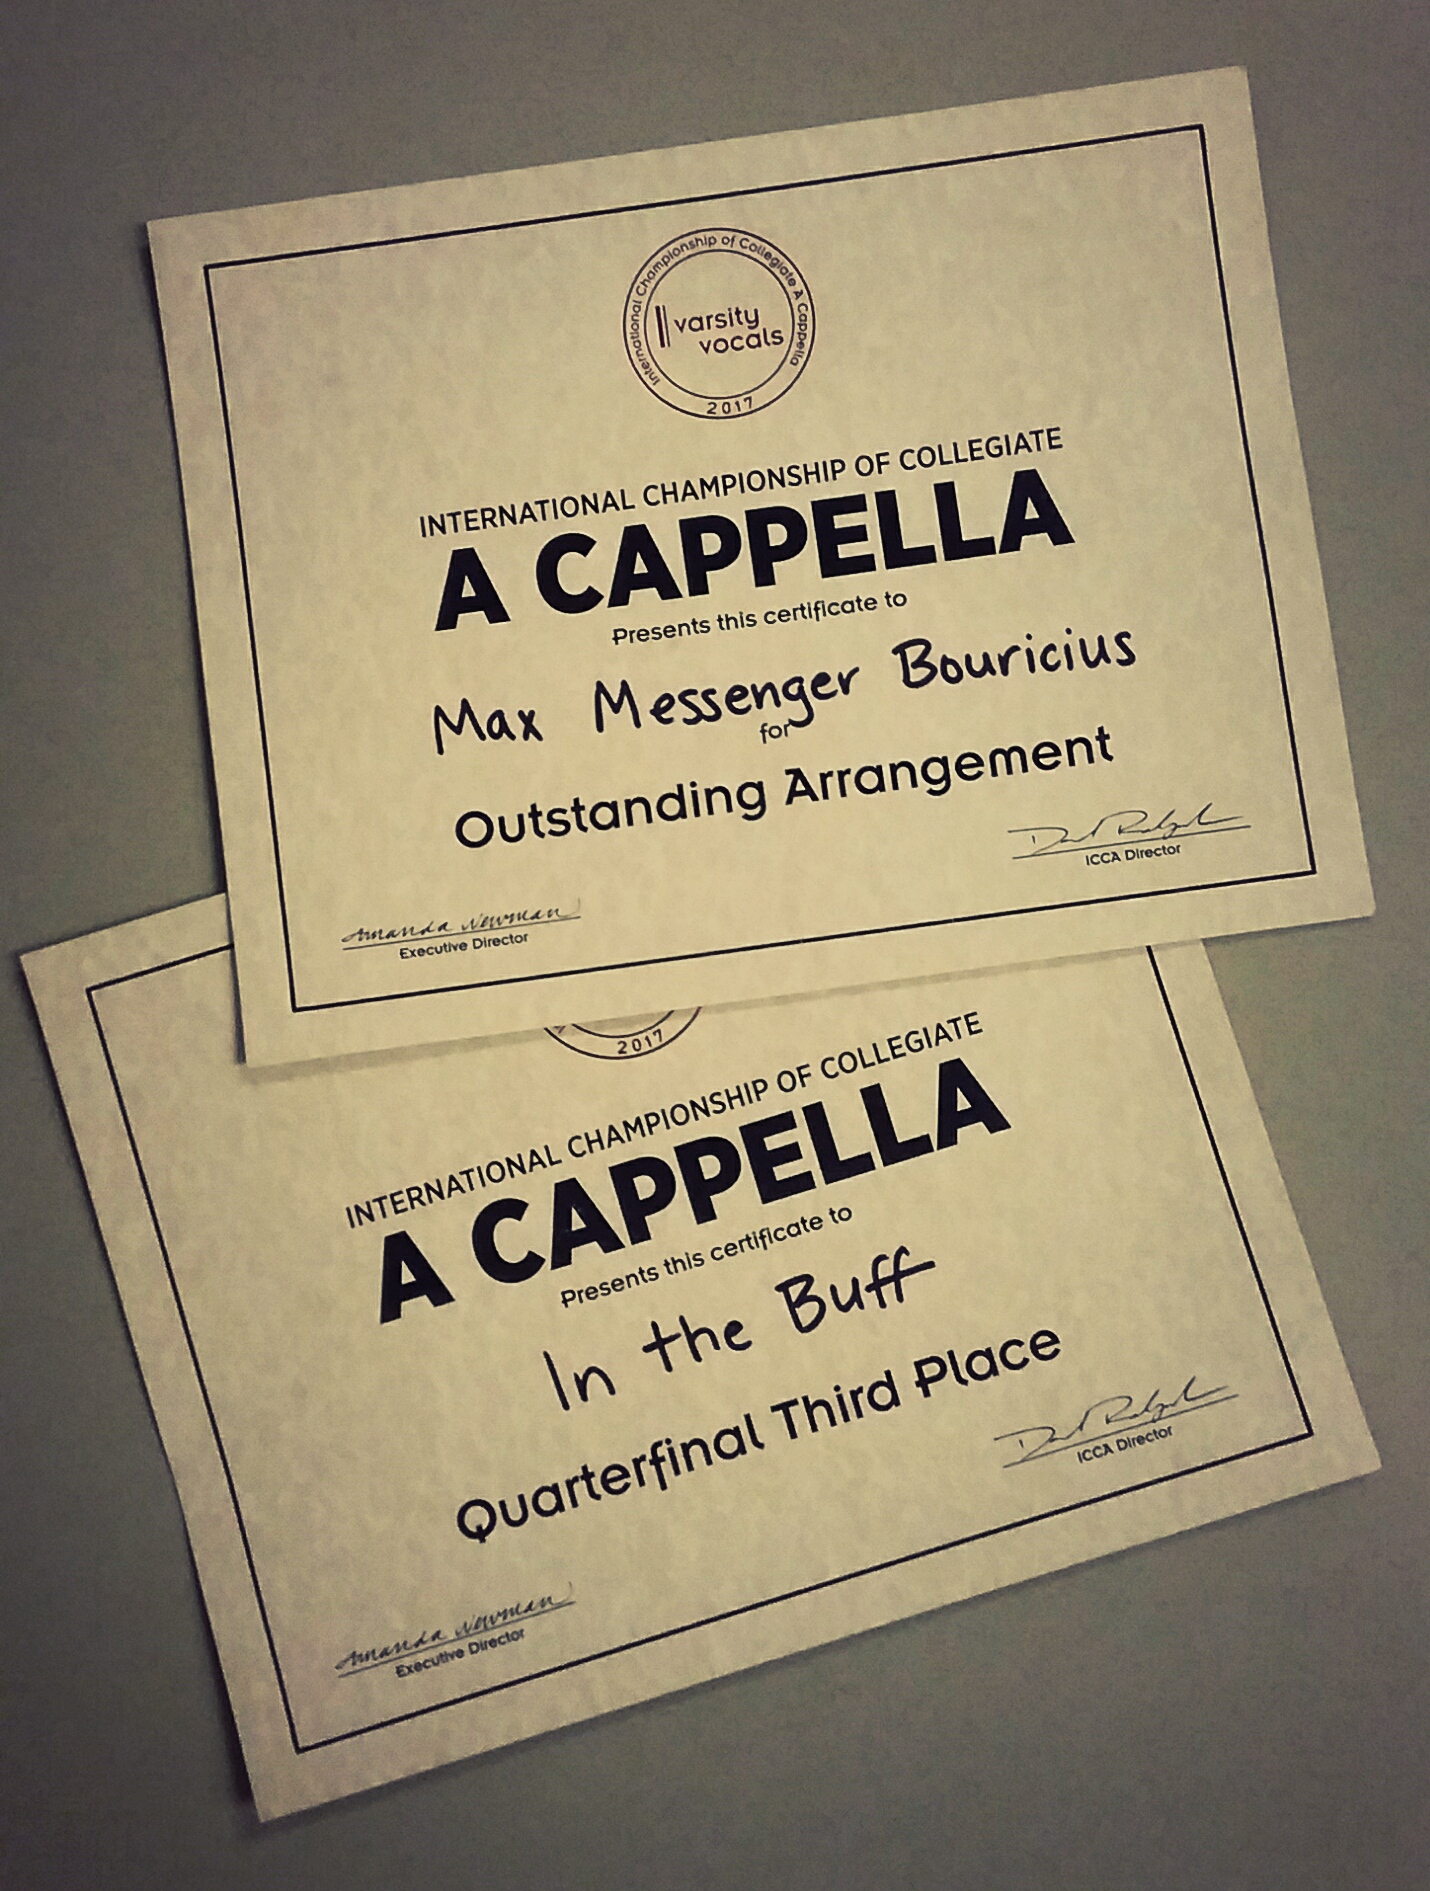 International Championship of Collegiate A Cappella
varsity
vocals
2017
INTERNATIONAL CHAMPIONSHIP OF COLLEGIATE
A CAPPELLA
Presents this certificate to
Max Messenger Bouricius
for
Outstanding Arrangement
ICCA Director
Amanda Newman
Executive Director
2017
INTERNATIONAL CHAMPIONSHIP OF COLLEGIATE
A CAPPELLA
Presents this certificate to
In the Buff
Quarterfinal Third Place
ICCA Director
Amanda Newman
Executive Director